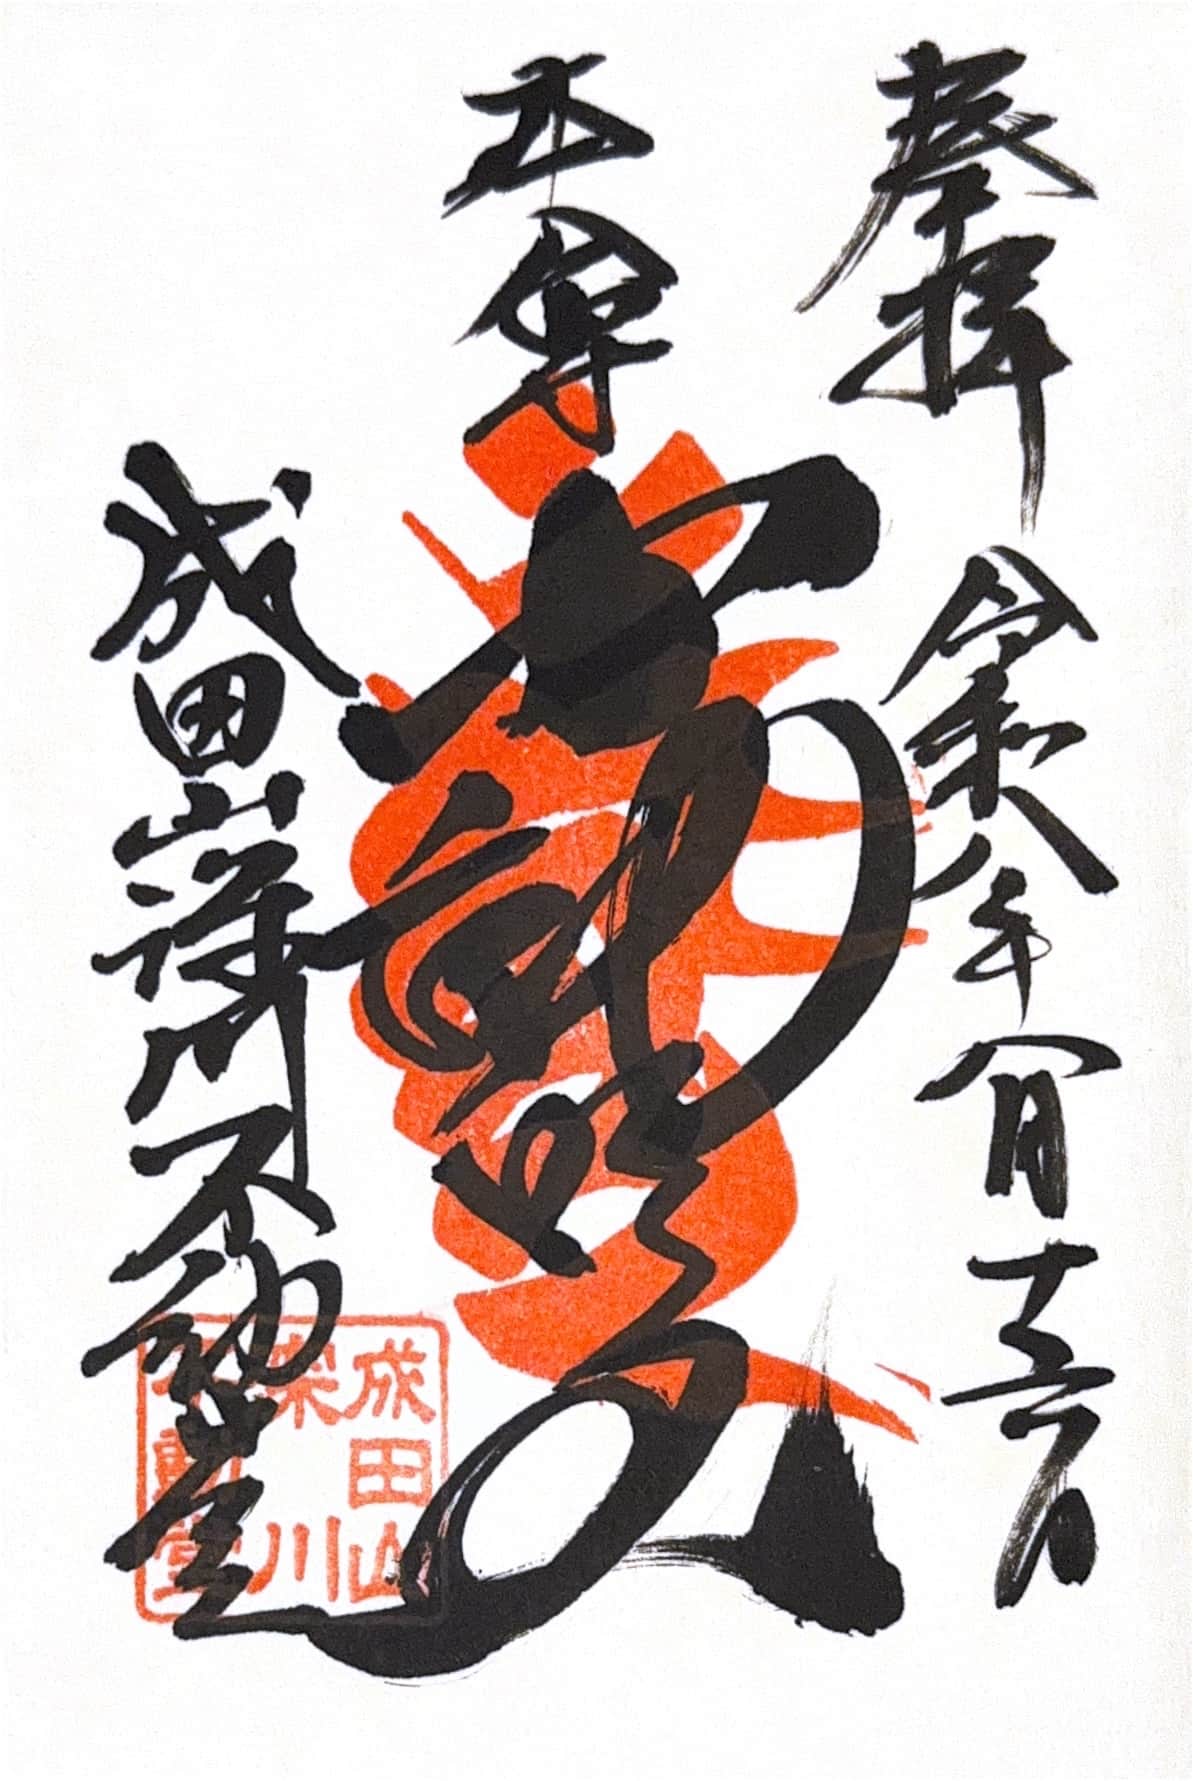 奉拝 令和八年 月十六日
本尊
不動明王
成田山深川不動堂
成田山
深川
不動堂